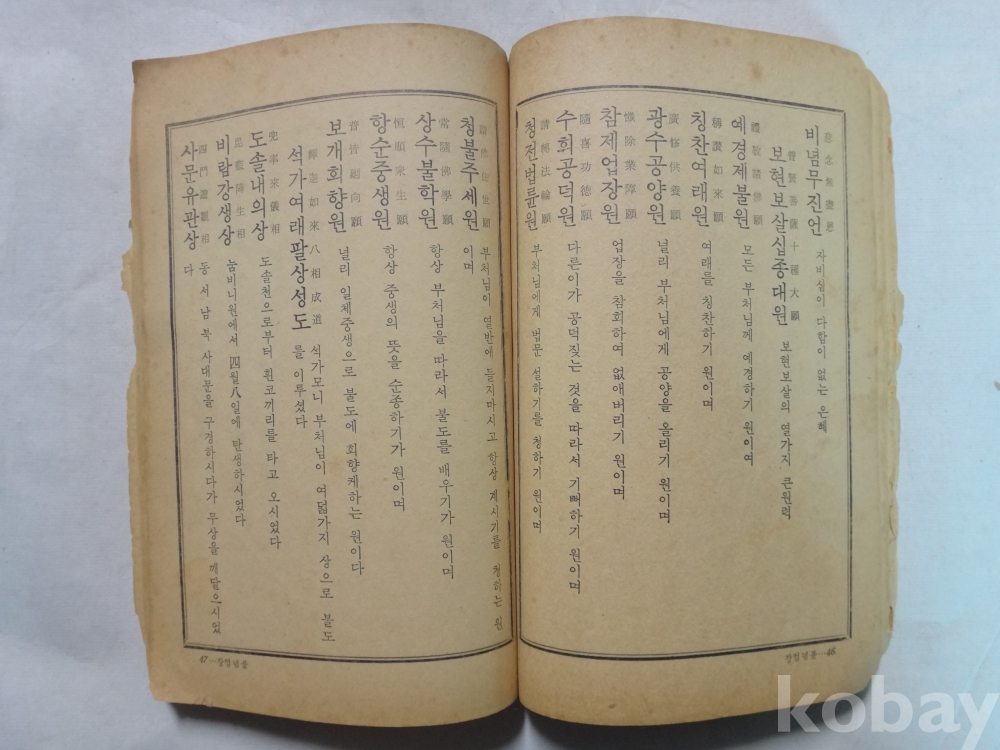 悲念無盡恩
비념무진언 자비심이 다함이 없는 은혜
普賢菩薩十種大願
보현보살십종대원 보현보살의 열가지 큰원력
禮敬諸佛願
예경제불원 모든 부처님께 예경하기 원이여
稱讚如來願
칭찬여래원 여래를 칭찬하기 원이며
廣修供養願
광수공양원 널리 부처님에게 공양을 올리기 원이며
懺除業障願
참제업장원 업장을 참회하여 없애버리기 원이며
隨喜功德願
수희공덕원 다른이가 공덕짓는 것을 따라서 기뻐하기 원이며
請轉法輪願
청전법륜원 부처님에게 법문 설하기를 청하기 원이며
46
請佛住世願
청불주세원 부처님이 열반에 들지마시고 항상 계시기를 청하는 원
이며
常隨佛學願
상수불학원 항상 부처님을 따라서 불도를 배우기가 원이며
恒順衆生願
항순중생원 항상 중생의 뜻을 순종하기가 원이며
普皆廻向願
보개희향원 널리 일체중생으로 불도에 회향케하는 원이다
釋迦如來八相成道
석가여래팔상성도 석가모니 부처님이 여덟가지 상으로 불도
를 이루셨다
兜率來儀相
도솔내의상 도솔천으로부터 흰코끼리를 타고 오시었다
毘藍降生相
비람강생상 눔비니원에서 四월八일에 탄생하시었다
四門遊觀相
사문유관상 동 서 남 북 사대문을 구경하시다가 무상을 깨달으시었
다
47
kobay